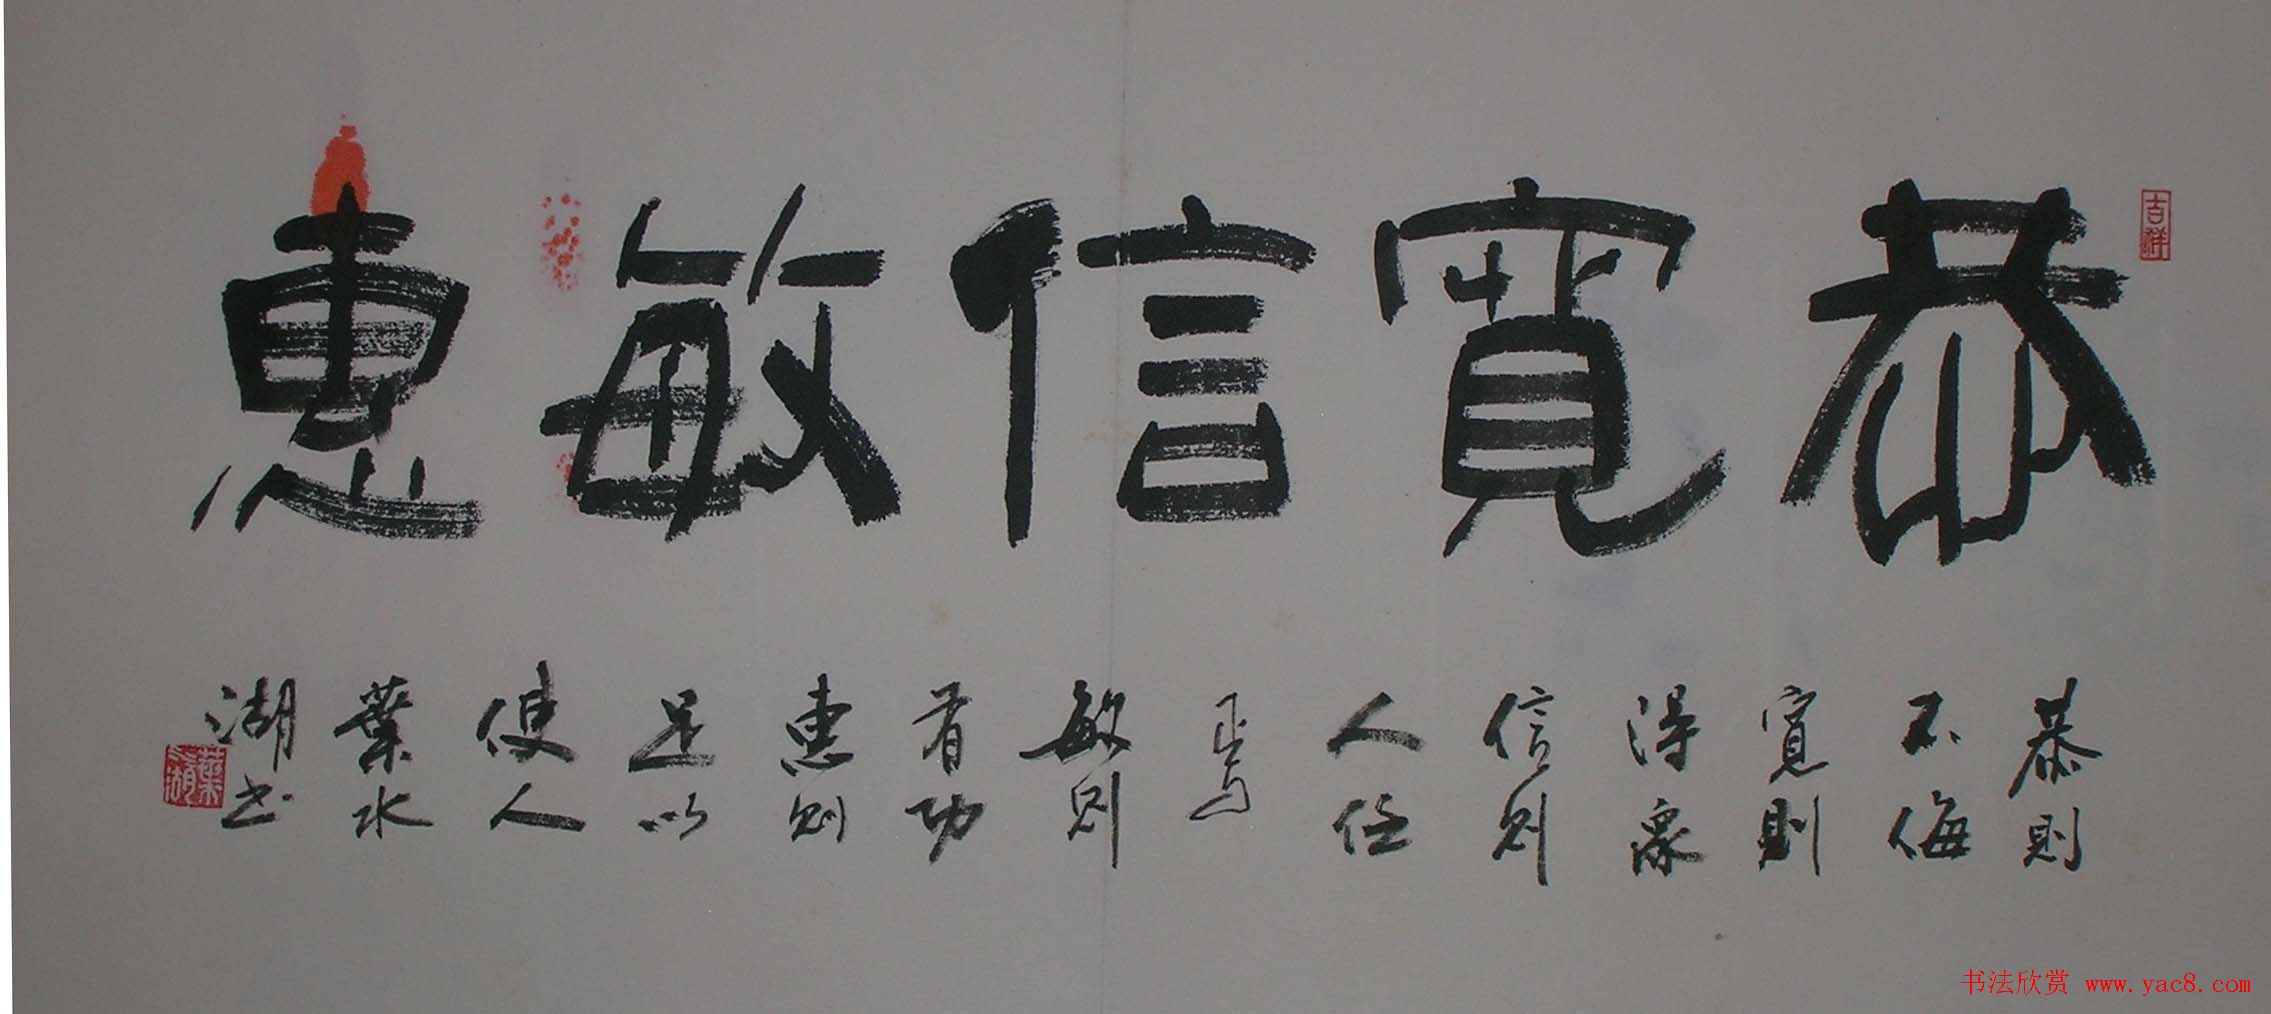 恭寬信敏惠
吉祥
恭則
不侮
寬則
得眾
信則
人任
焉
敏則
有功
惠則
足以
使人
葉水
湖书
葉水湖
书法欣赏 www.yac8.com